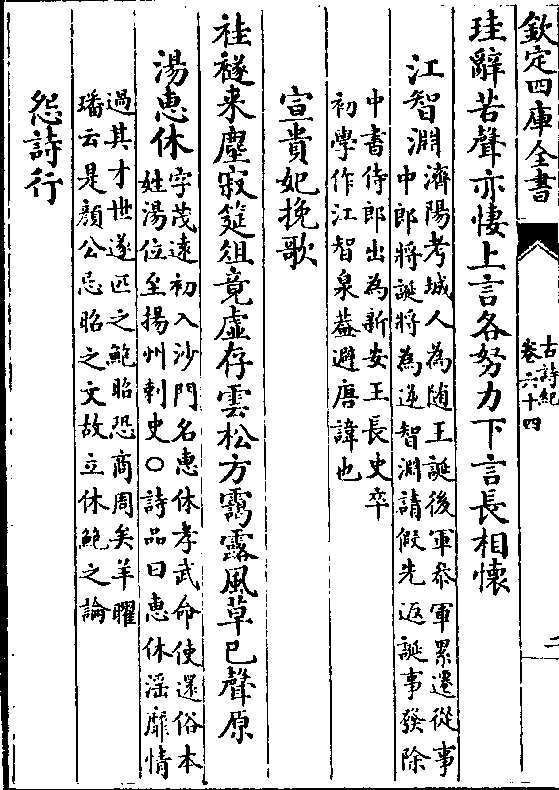 欽定四庫全書
古詩紀
卷六十四
二
珪辭苦聲亦悽上言各努力下言長相懷
江智淵
濟陽考城人為隨王誕後軍叅軍累遷從事
中郎將誕將為逆智淵請假先返誕事發除
中書侍郎出為新安王長史卒
初學作江智泉葢避唐諱也
宣貴妃挽歌
袿襚來塵寂筵俎竟虛存雲松方靄露風草已聲原
湯惠休
字茂遠初入沙門名惠休孝武命使還俗本
姓湯位至揚州刺史○詩品曰惠休淫靡情
過其才世遂匹之鮑昭恐商周矣羊曜
璠云是顏公忌昭之文故立休鮑之論
怨詩行